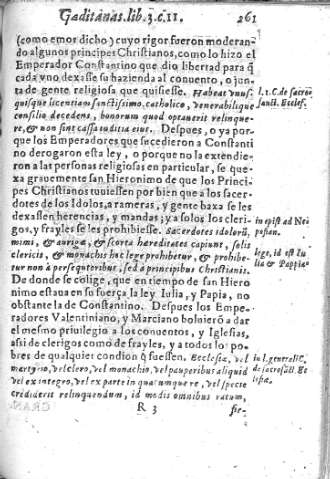 Gaditanas. lib. 3. c. 11. 261
(como emos dicho) cuyo rigor fueron moderan-
do algunos principes Christianos, como lo hizo el
Emperador Constantino que dio libertad para q̃
cada vno dexasse su hazienda al conuento, o jun-
ta de gente religiosa que quisiesse. Habeat vnus-
quisque licentiam sanctissimo, catholico, venerabilique
consilio decedens, bonorum quod optauerit relinque-
re, & non sint cassa iudicia eius. Despues, o ya por-
que los Emperadores que sucedieron a Constanti
no derogaron esta ley, o porque no la extendie-
ron a las personas religiosas en particular, se que-
xa grauemente san Hieronimo de que los Princi-
pes Christianos tuuiessen por bien que a los sacer-
dotes de los Idolos, a rameras, y gente baxa se les
dexassen herencias, y mandas; y a solos los cleri-
gos, y frayles se les prohibiesse. Sacerdotes idolorũ,
mimi, & aurigæ, & scorta hæreditates capiunt, solis
clericis, & monachis hac lege prohibetur, & prohibe-
tur non à persequutoribus, sed à principibus Christianis.
De donde se colige, que en tiempo de san Hiero
nimo estaua en su fuerça la ley Iulia, y Papia, no
obstante la de Constantino. Despues los Empe-
radores Valentiniano, y Marciano boluierõ a dar
el mesmo priuilegio a los conuentos, y Iglesias,
assi de clerigos como de frayles, y a todos los po-
bres de qualquier condion q̃ fuessen. Ecclesiæ, vel
martyrio, vel clero, vel monachio, vel pauperibus aliquid
vel ex integro, vel ex parte in quacumque re, vel specie
crediderit relinquendum, id modis omnibus ratum,
R 3 fir-
l. 1. C. de sacro
sanct. Ecclef.
in epist ad Ne
potian.
lege, id est Iu
lia & Pappia
in l. generali C.
de sacrosãct. Ec
clesiæ.